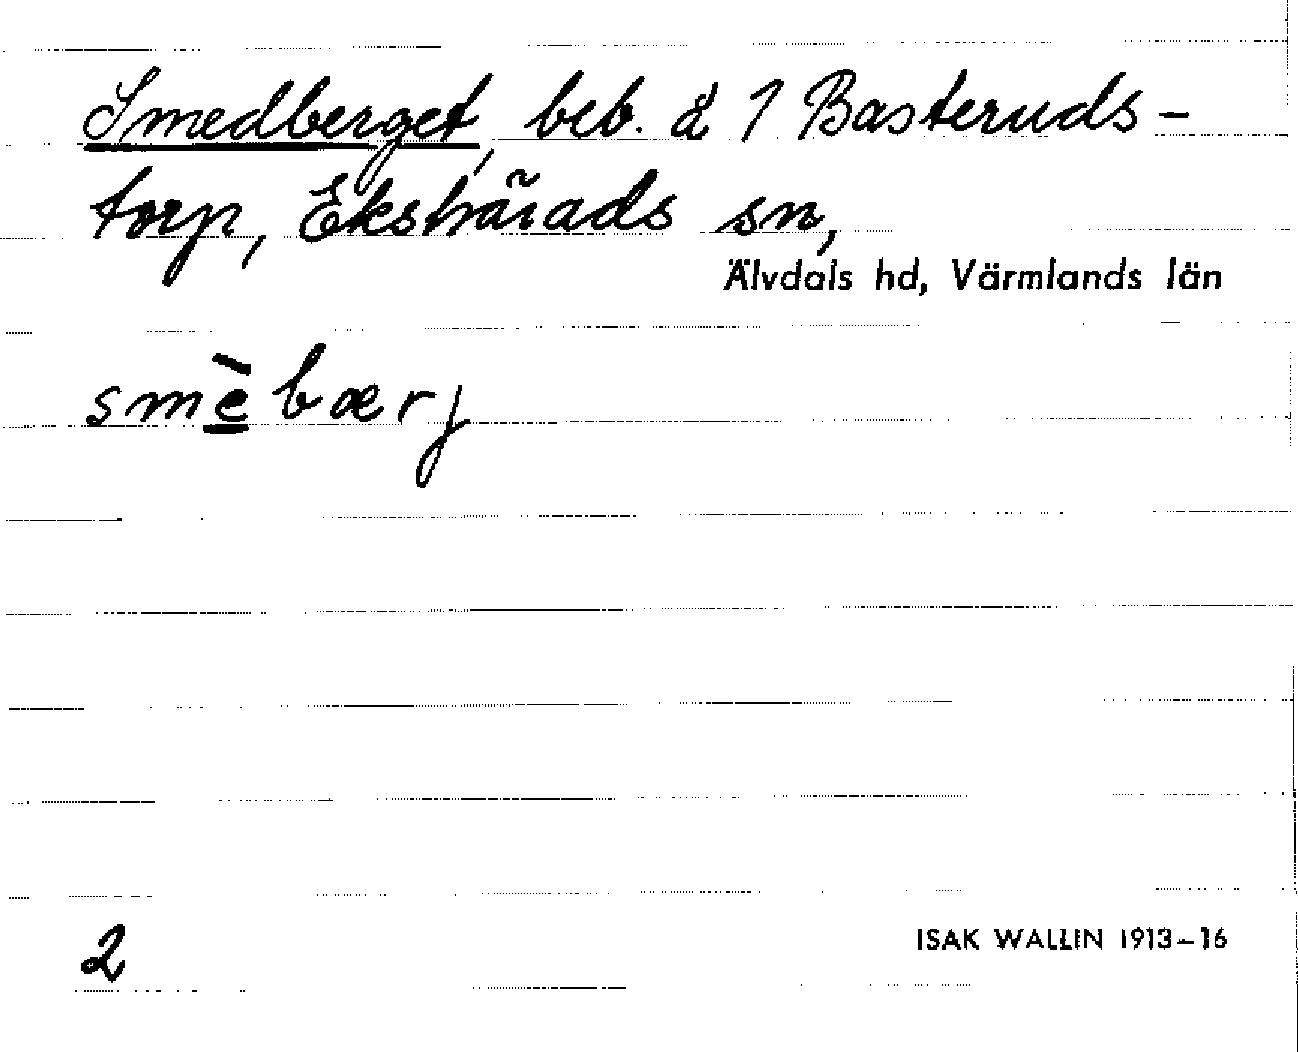 Smedberget, beb. å 1 Basteruds-
torp, Ekshärads sn,
Älvdals hd, Värmlands län
smèbærj
2
ISAK WALLIN 1913–16